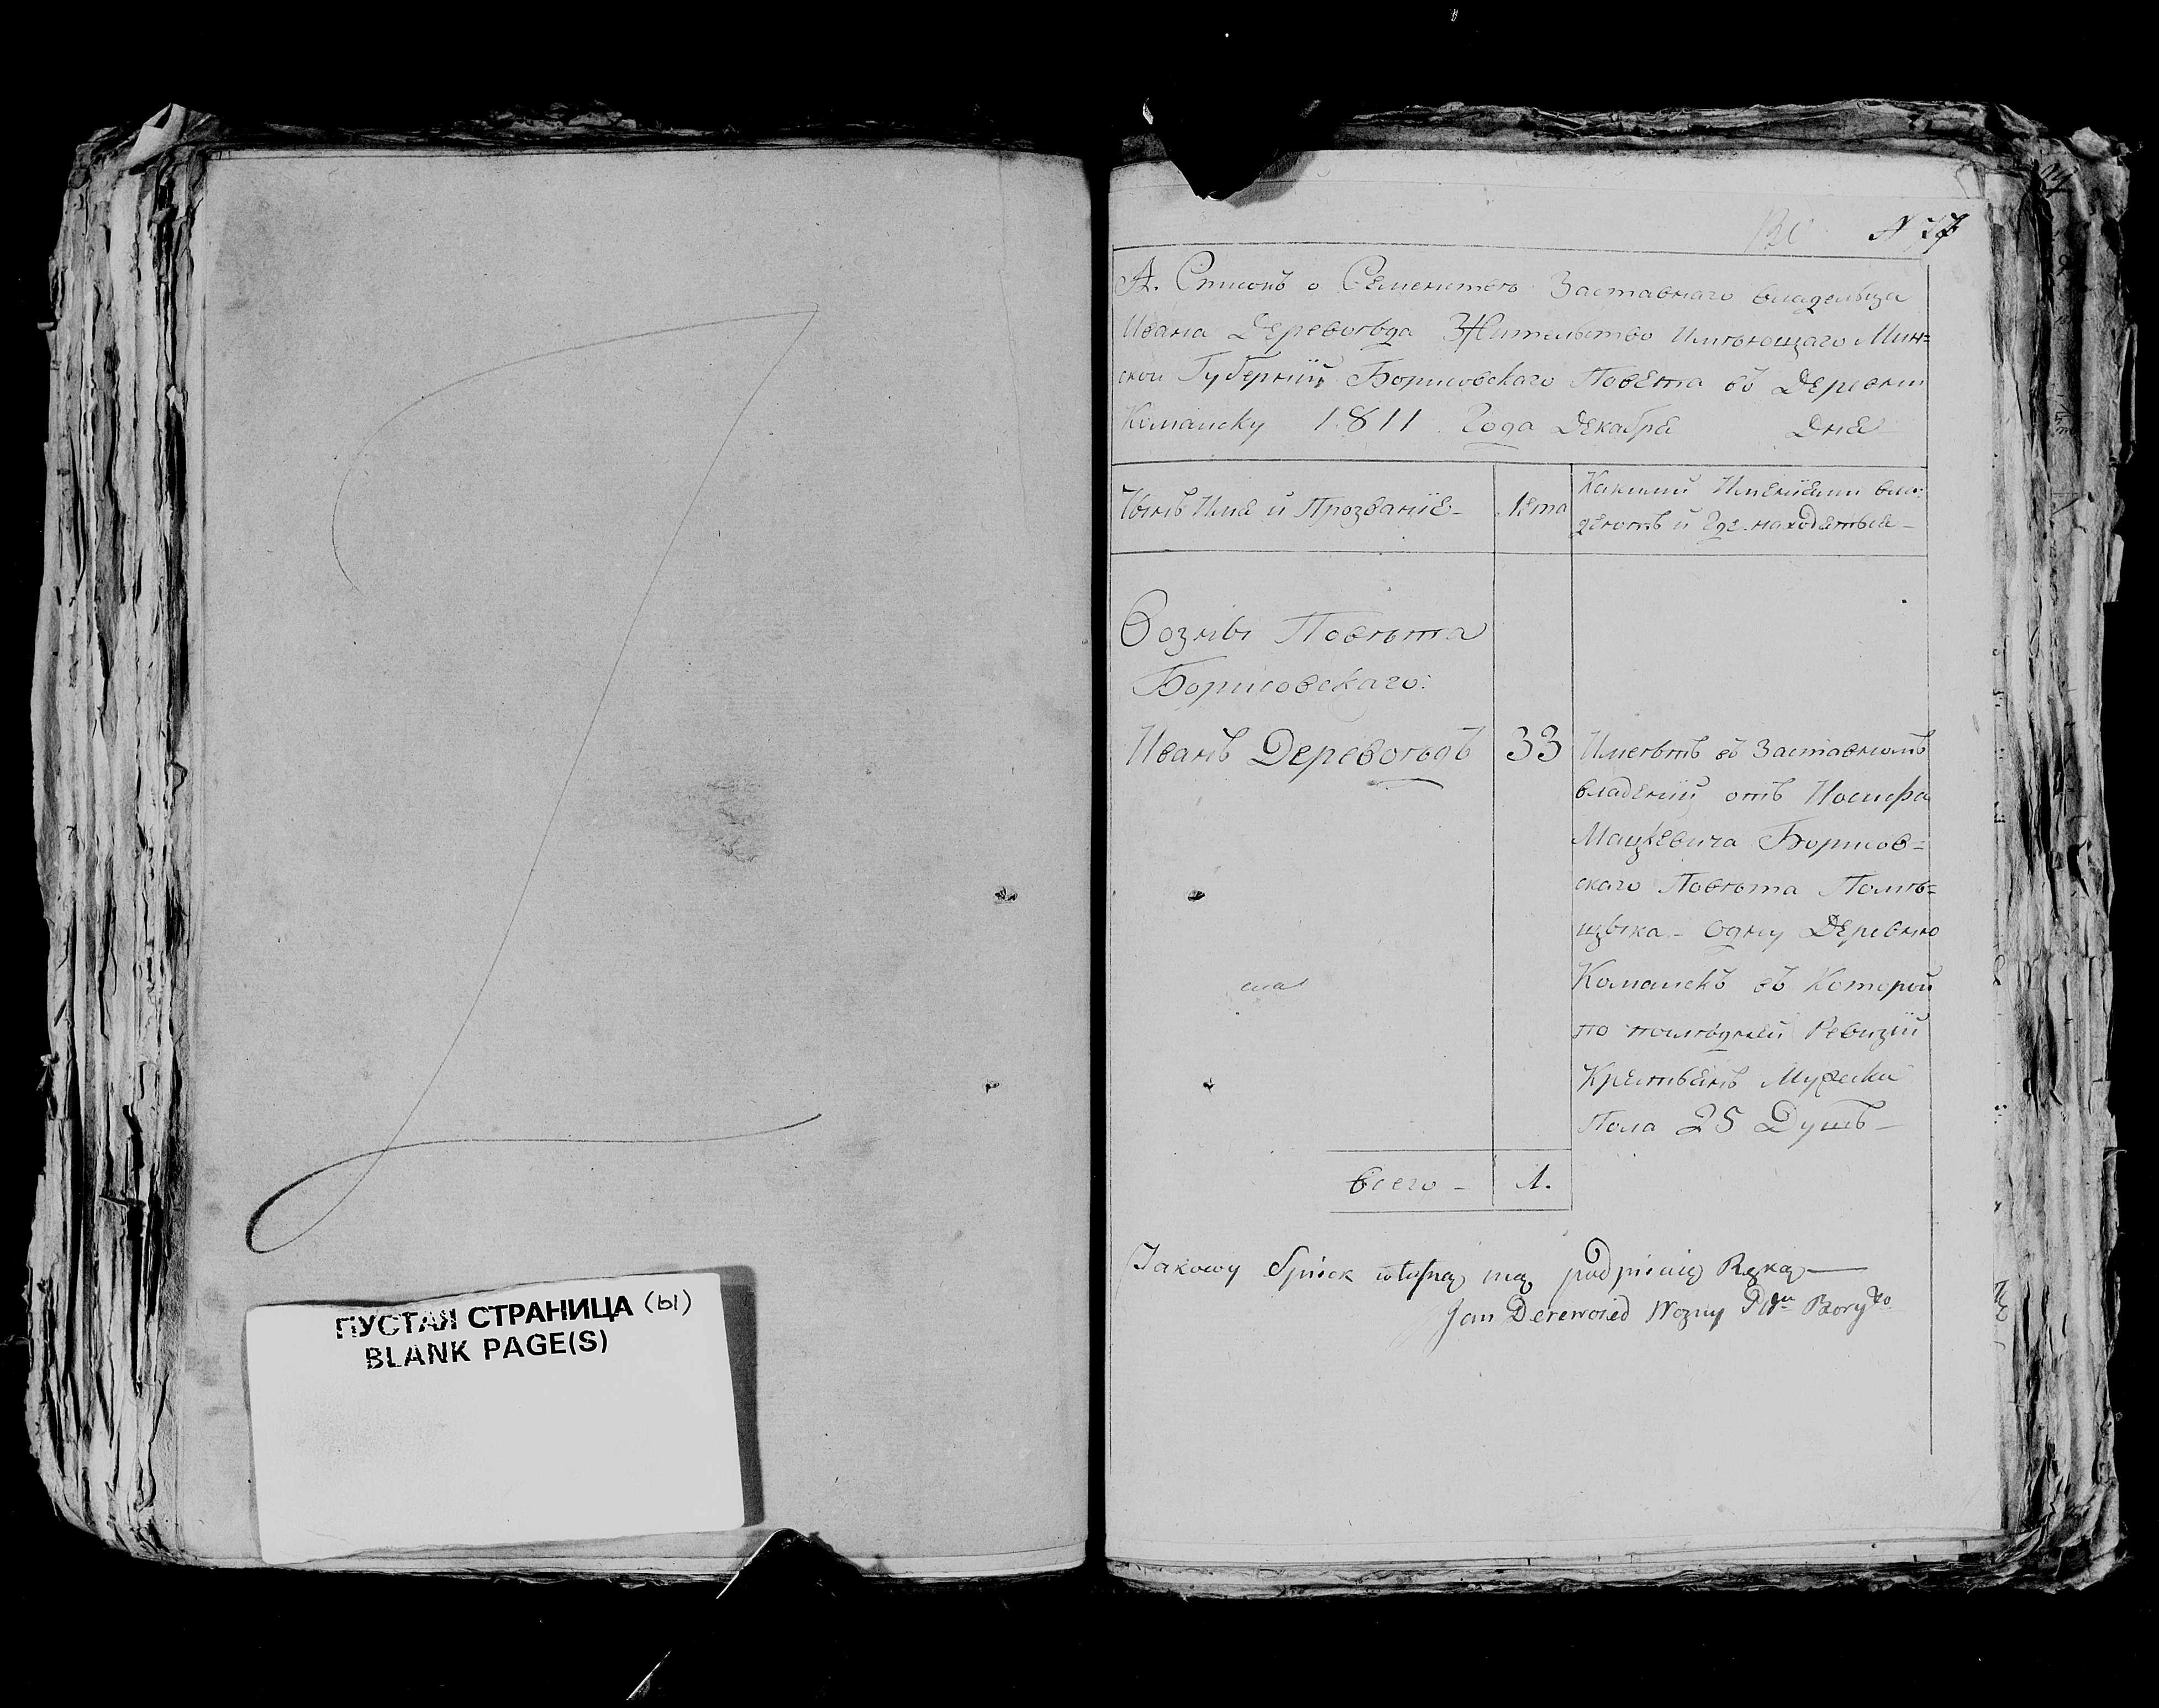 ПУСТАЯ СТРАНИЦА (ы)
BLANK PAGE(S)
N 77
А. Списокъ о Семействѣ Заставнаго владельца
Ивана Деревоѣда Жительство Имѣющаго Мин=
ской Губерніи Борисовскаго Повета въ Деревни
Команску 1811 Года Декабря Дня
Чынъ Имя и Прозваніе-
Лета
Какими Имѣніями вла:
деютъ и Где находятъся-
Возный Повѣта
Борисовскаго:
Иванъ Деревоѣдъ
33
Имеѣтъ въ Заставномъ
владеніи отъ Іосифа
Мацкевича Борисов=
скаго Повѣта Помѣ=
щыка - Одну Деревню
Команскъ въ Которой
по последней Ревизіи
Крестьянъ Мужска
Пола 25 Душъ-
всего - 1.
Takowy Spisek własną mą podpisuię Ręką—
Jan Derewoied Wozny Ptu Borygo